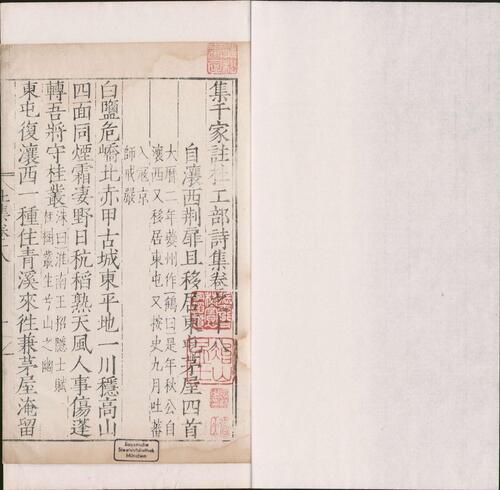 集千家註杜工部詩集卷之十八
自瀼西荆扉且移居東屯茅屋四首
大曆二年夔州作鶴曰是年秋公自
瀼西又移居東屯又按史九月吐蕃
入寇京
師戒嚴
白鹽危嶠北赤甲古城東平地一川穩高山
四面同煙霜凄野日秔稻熟天風人事傷蓬
轉吾將守桂叢
洙曰淮南王招隱士賦
桂樹叢生兮山之幽
東屯復瀼西一種住青溪來徃兼茅屋淹留
Bayerische
Staatsbibliothek
München